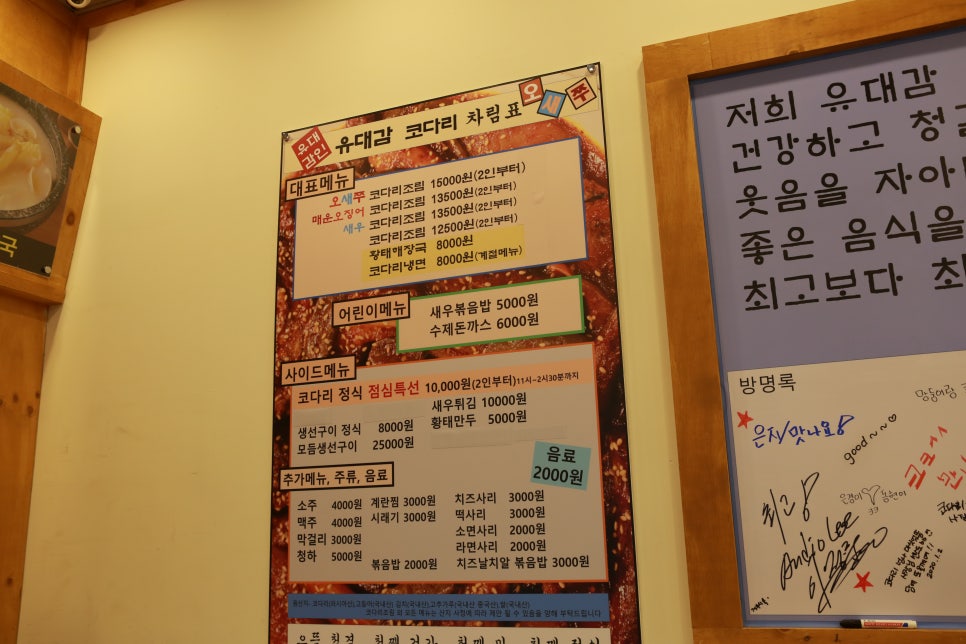 국
유대
감인
유대감 코다리 차림표
오 새 쭈
대표메뉴
오새쭈 코다리조림 15000원(2인부터)
매운오징어 코다리조림 13500원(2인부터)
새우 코다리조림 13500원(2인부터)
코다리조림 12500원(2인부터)
황태해장국 8000원
코다리냉면 8000원(계절메뉴)
어린이메뉴
새우볶음밥 5000원
수제돈까스 6000원
사이드메뉴
코다리 정식 점심특선 10,000원(2인부터)11시~2시30분까지
새우튀김 10000원
생선구이 정식 8000원 황태만두 5000원
모듬생선구이 25000원
음료
2000원
추가메뉴, 주류, 음료
소주 4000원 계란찜 3000원 치즈사리 3000원
맥주 4000원 시래기 3000원 떡사리 3000원
막걸리 3000원 소면사리 2000원
청하 5000원 라면사리 2000원
볶음밥 2000원 치즈날치알 볶음밥 3000원
원산지- 코다리(러시아산)고등어(국내산) 김치(국내산),고추가루(국내산 중국산),쌀(국내산)
코다리조림 외 모든 메뉴는 산지 사정에 따라 제한 될 수 있음을 양해 부탁드립니다
저희 유대감
건강하고 청
웃음을 자아
좋은 음식을
최고보다 최
방명록
은지/맛나요
good~~♡
코코^^
Andio Lee
2020.1.2